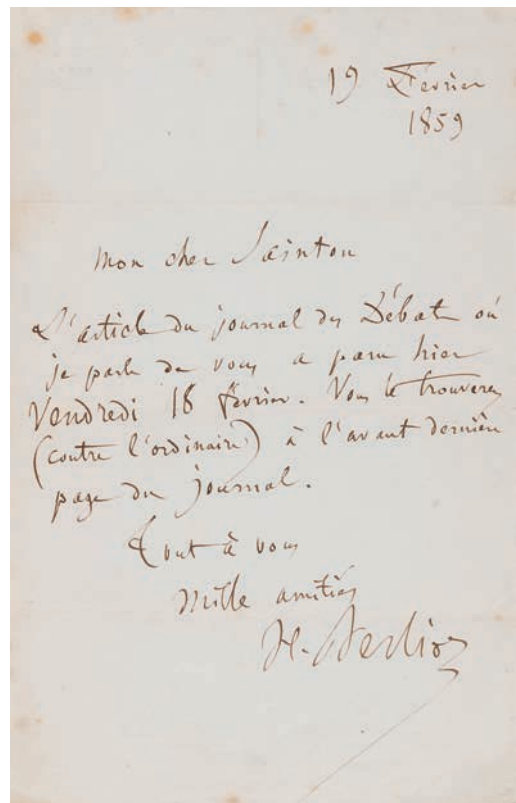 19 Février
1859
Mon cher Sainton
L'article du journal des Débats où
je parle de vous a paru hier
Vendredi 18 février. Vous le trouverez
(contre l'ordinaire) à l'avant dernière
page du journal.
Tout à vous
Mille amitiés
H. Berlioz